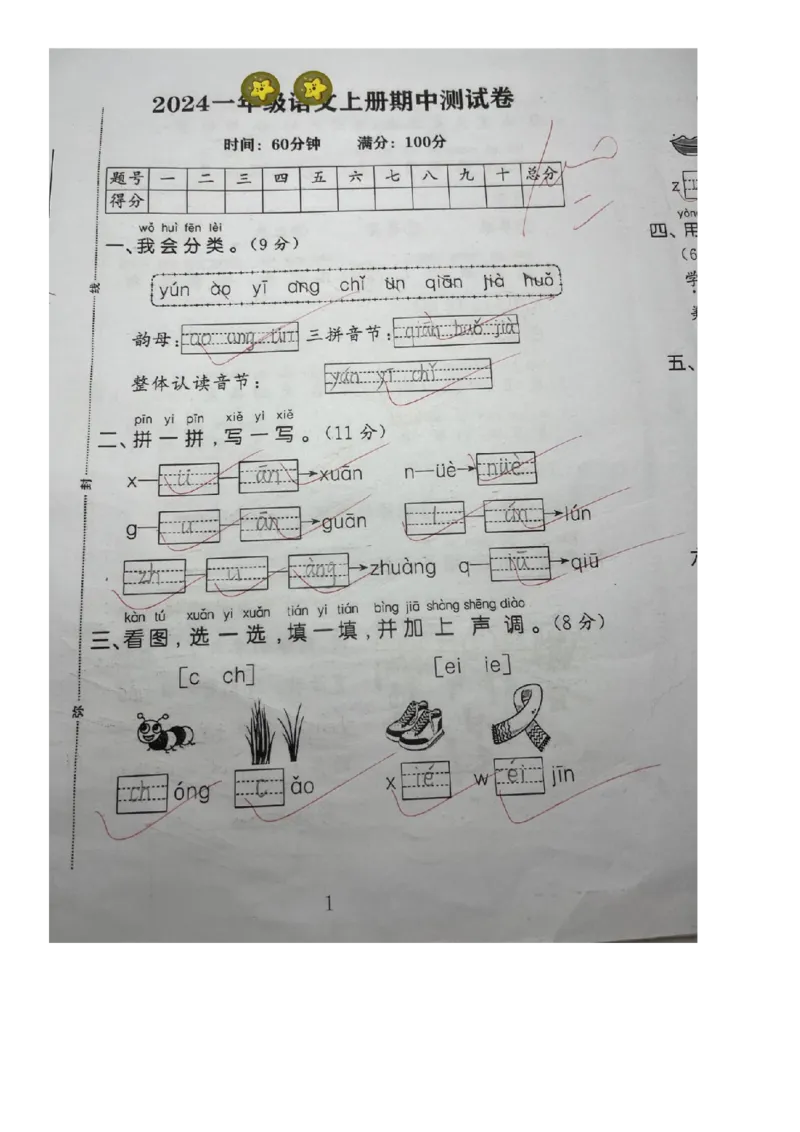 2024一年级语文上册期中测试卷
时间：60分钟 满分：100分
题号 一 二 三 四 五 六 七 八 九 十 总分
得分
wǒ huì fēn lèi
一、我会分类。（9分）
yún ào yī ang chǐ ün qiān jià huǒ
韵母： ao ang ün 三拼音节： qiān huǒ jià
整体认读音节： yún yī chǐ
pīn yi pīn xiě yi xiě
二、拼一拼，写一写。（11分）
x— ü — ān →xuān n—üè→ nüè
g— u — ān →guān l — ún →lún
zh — u — àng →zhuàng q— iū →qiū
kàn tú xuǎn yi xuǎn tián yi tián bìng jiā shàng shēng diào
三、看图，选一选，填一填，并加上声调。（8分）
[c ch] [ei ie]
ch óng c ǎo x ié w éi jīn
1
线
封
弥
z
yòn
四、用
（6
学
五、